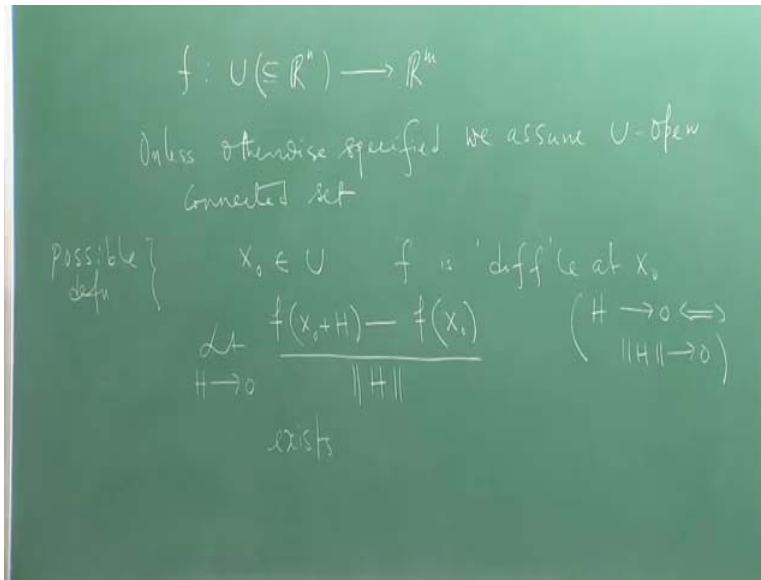 f : U(⊆ ℝⁿ) ⟶ ℝᵐ
Unless otherwise specified we assume U-open
connected set
possible defn } x₀ ∈ U f is 'diff'ble at x₀
Lt H→0 f(x₀+H) — f(x₀) / ||H|| (H → 0 ⟺
||H|| → 0)
exists